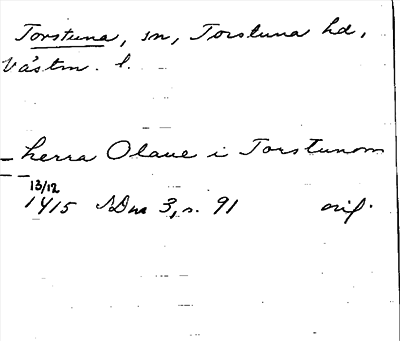 Torstuna, sn, Torstuna hd,
Västm. l.
herra Olaue i Torstunom
13/12
1415 SDns 3, s. 91 orig.